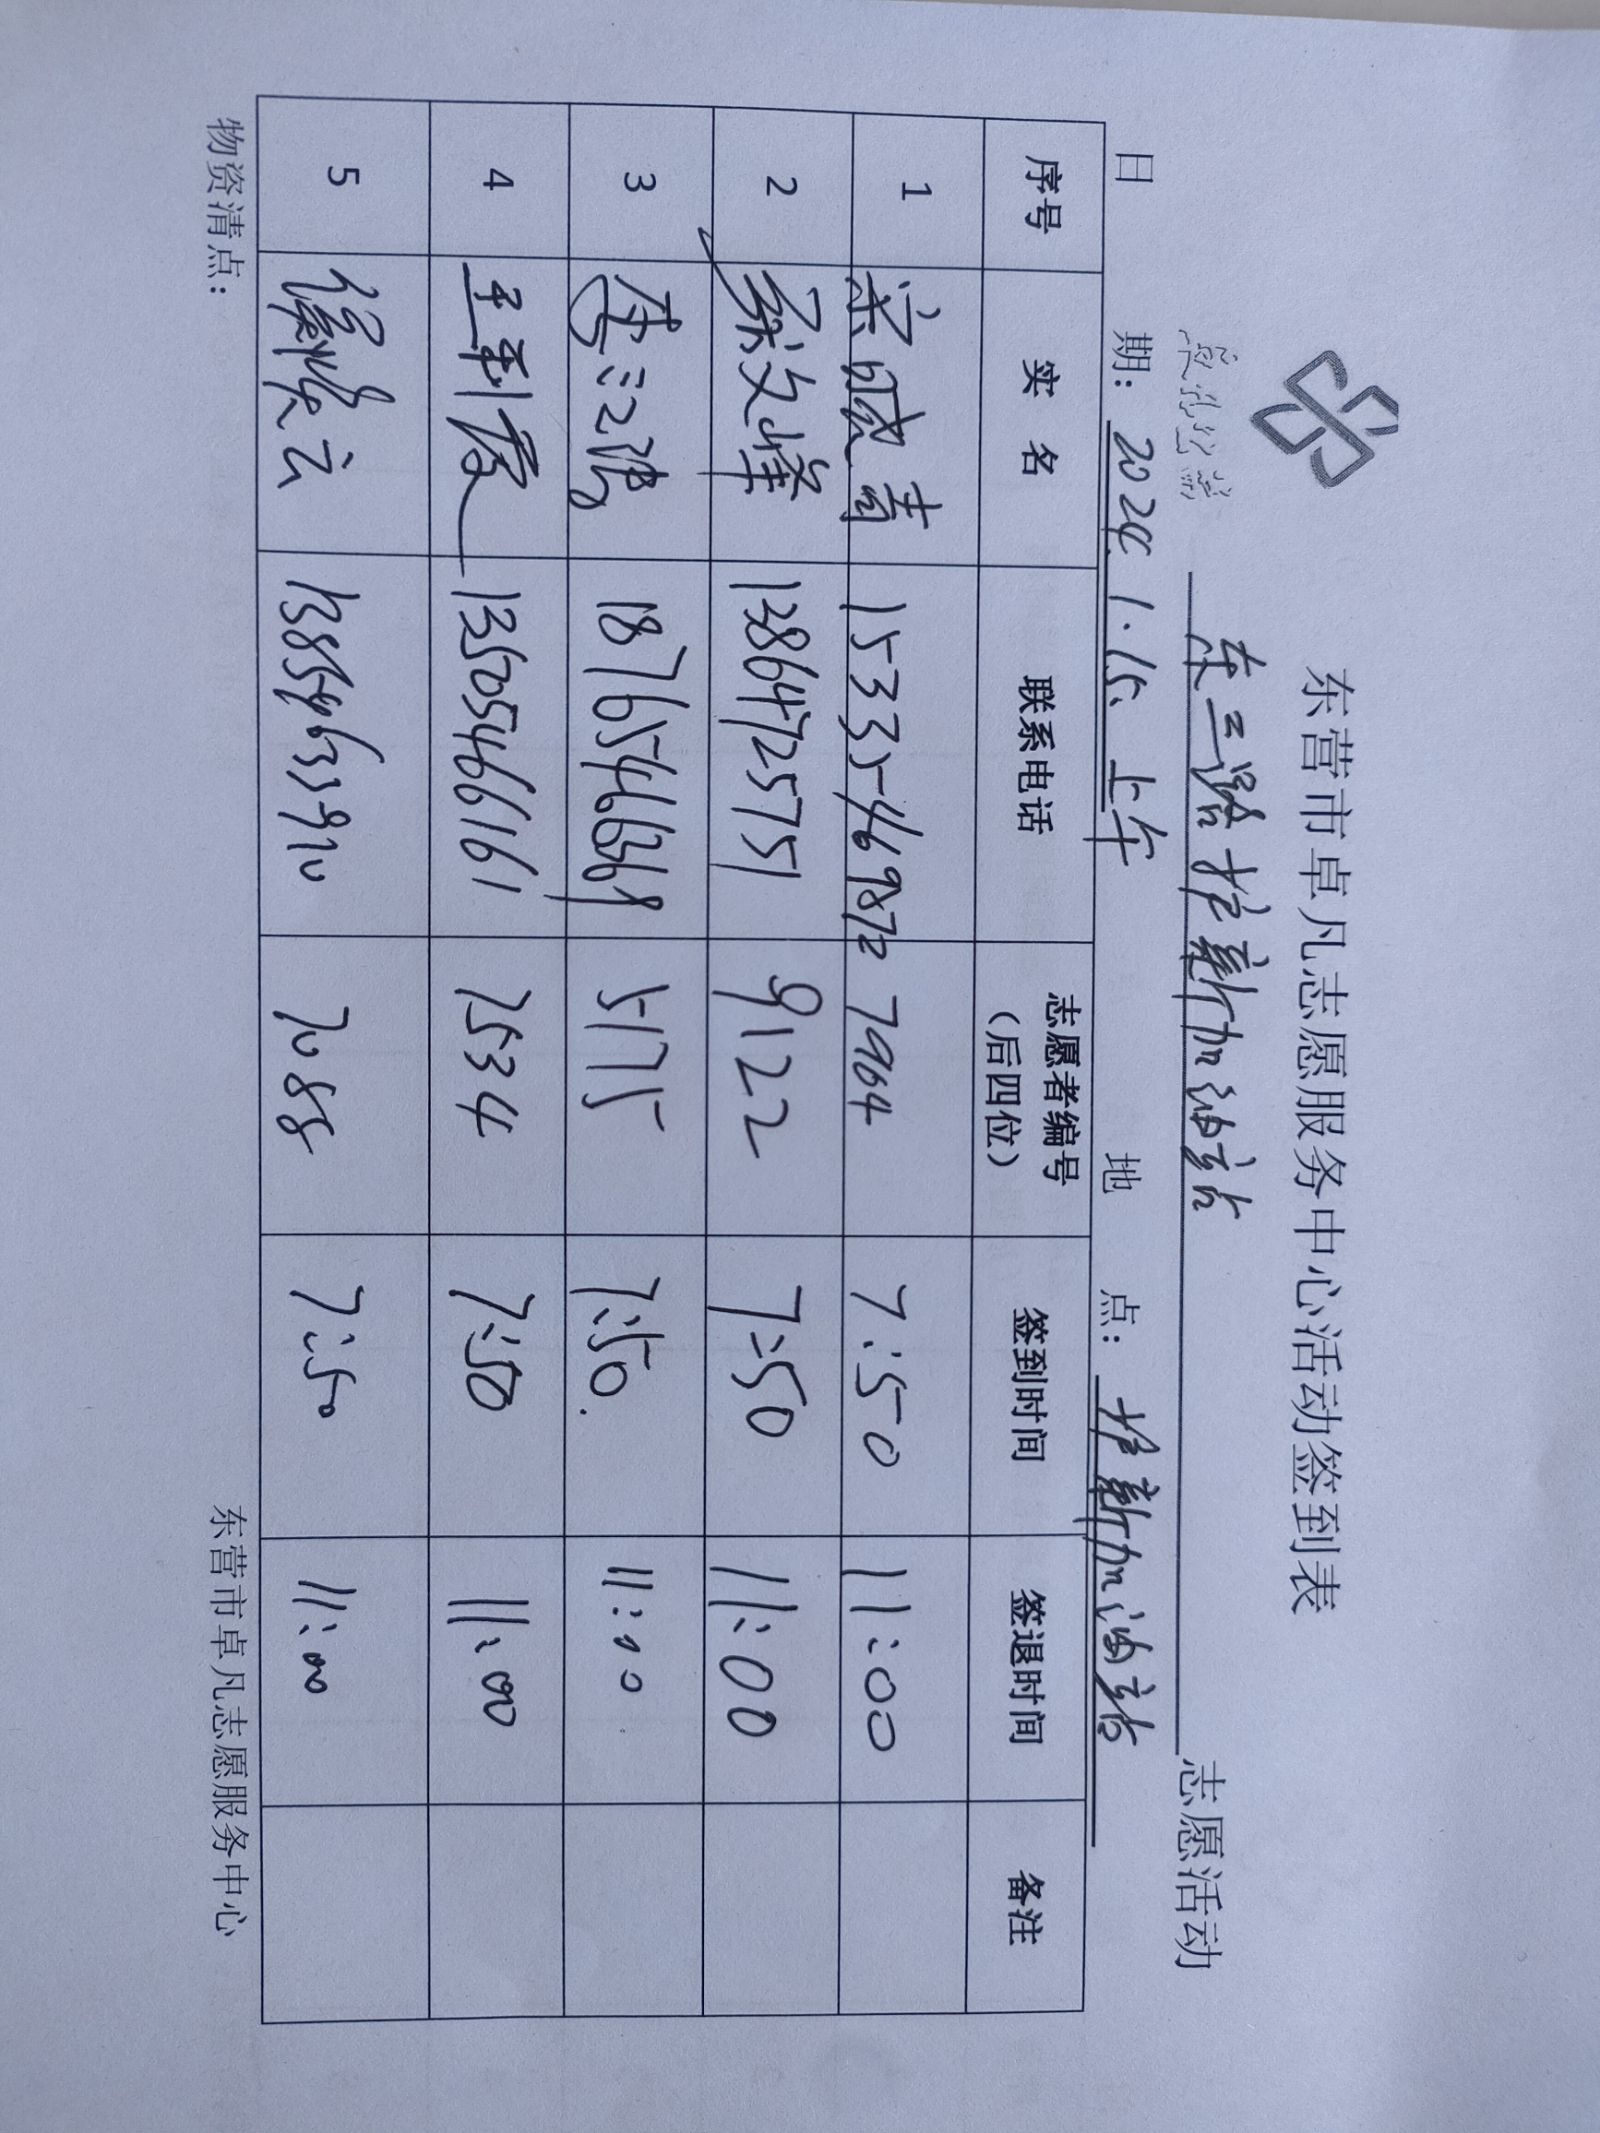 东营市卓凡志愿服务中心活动签到表
东三路 新加油站 志愿活动
日 期: 2024.1.15. 上午 地 点: 新加油站
序号 实 名 联系电话 志愿者编号(后四位) 签到时间 签退时间 备注
1 15335469872 7964 7:50 11:00
2 文峰 13864725751 9122 7:50 11:00
3 18765466369 5175 7:50. 11:00
4 王利霞 13505466161 7534 7:50 11:00
5 云 7088 7:50 11:00
物资清点: 东营市卓凡志愿服务中心